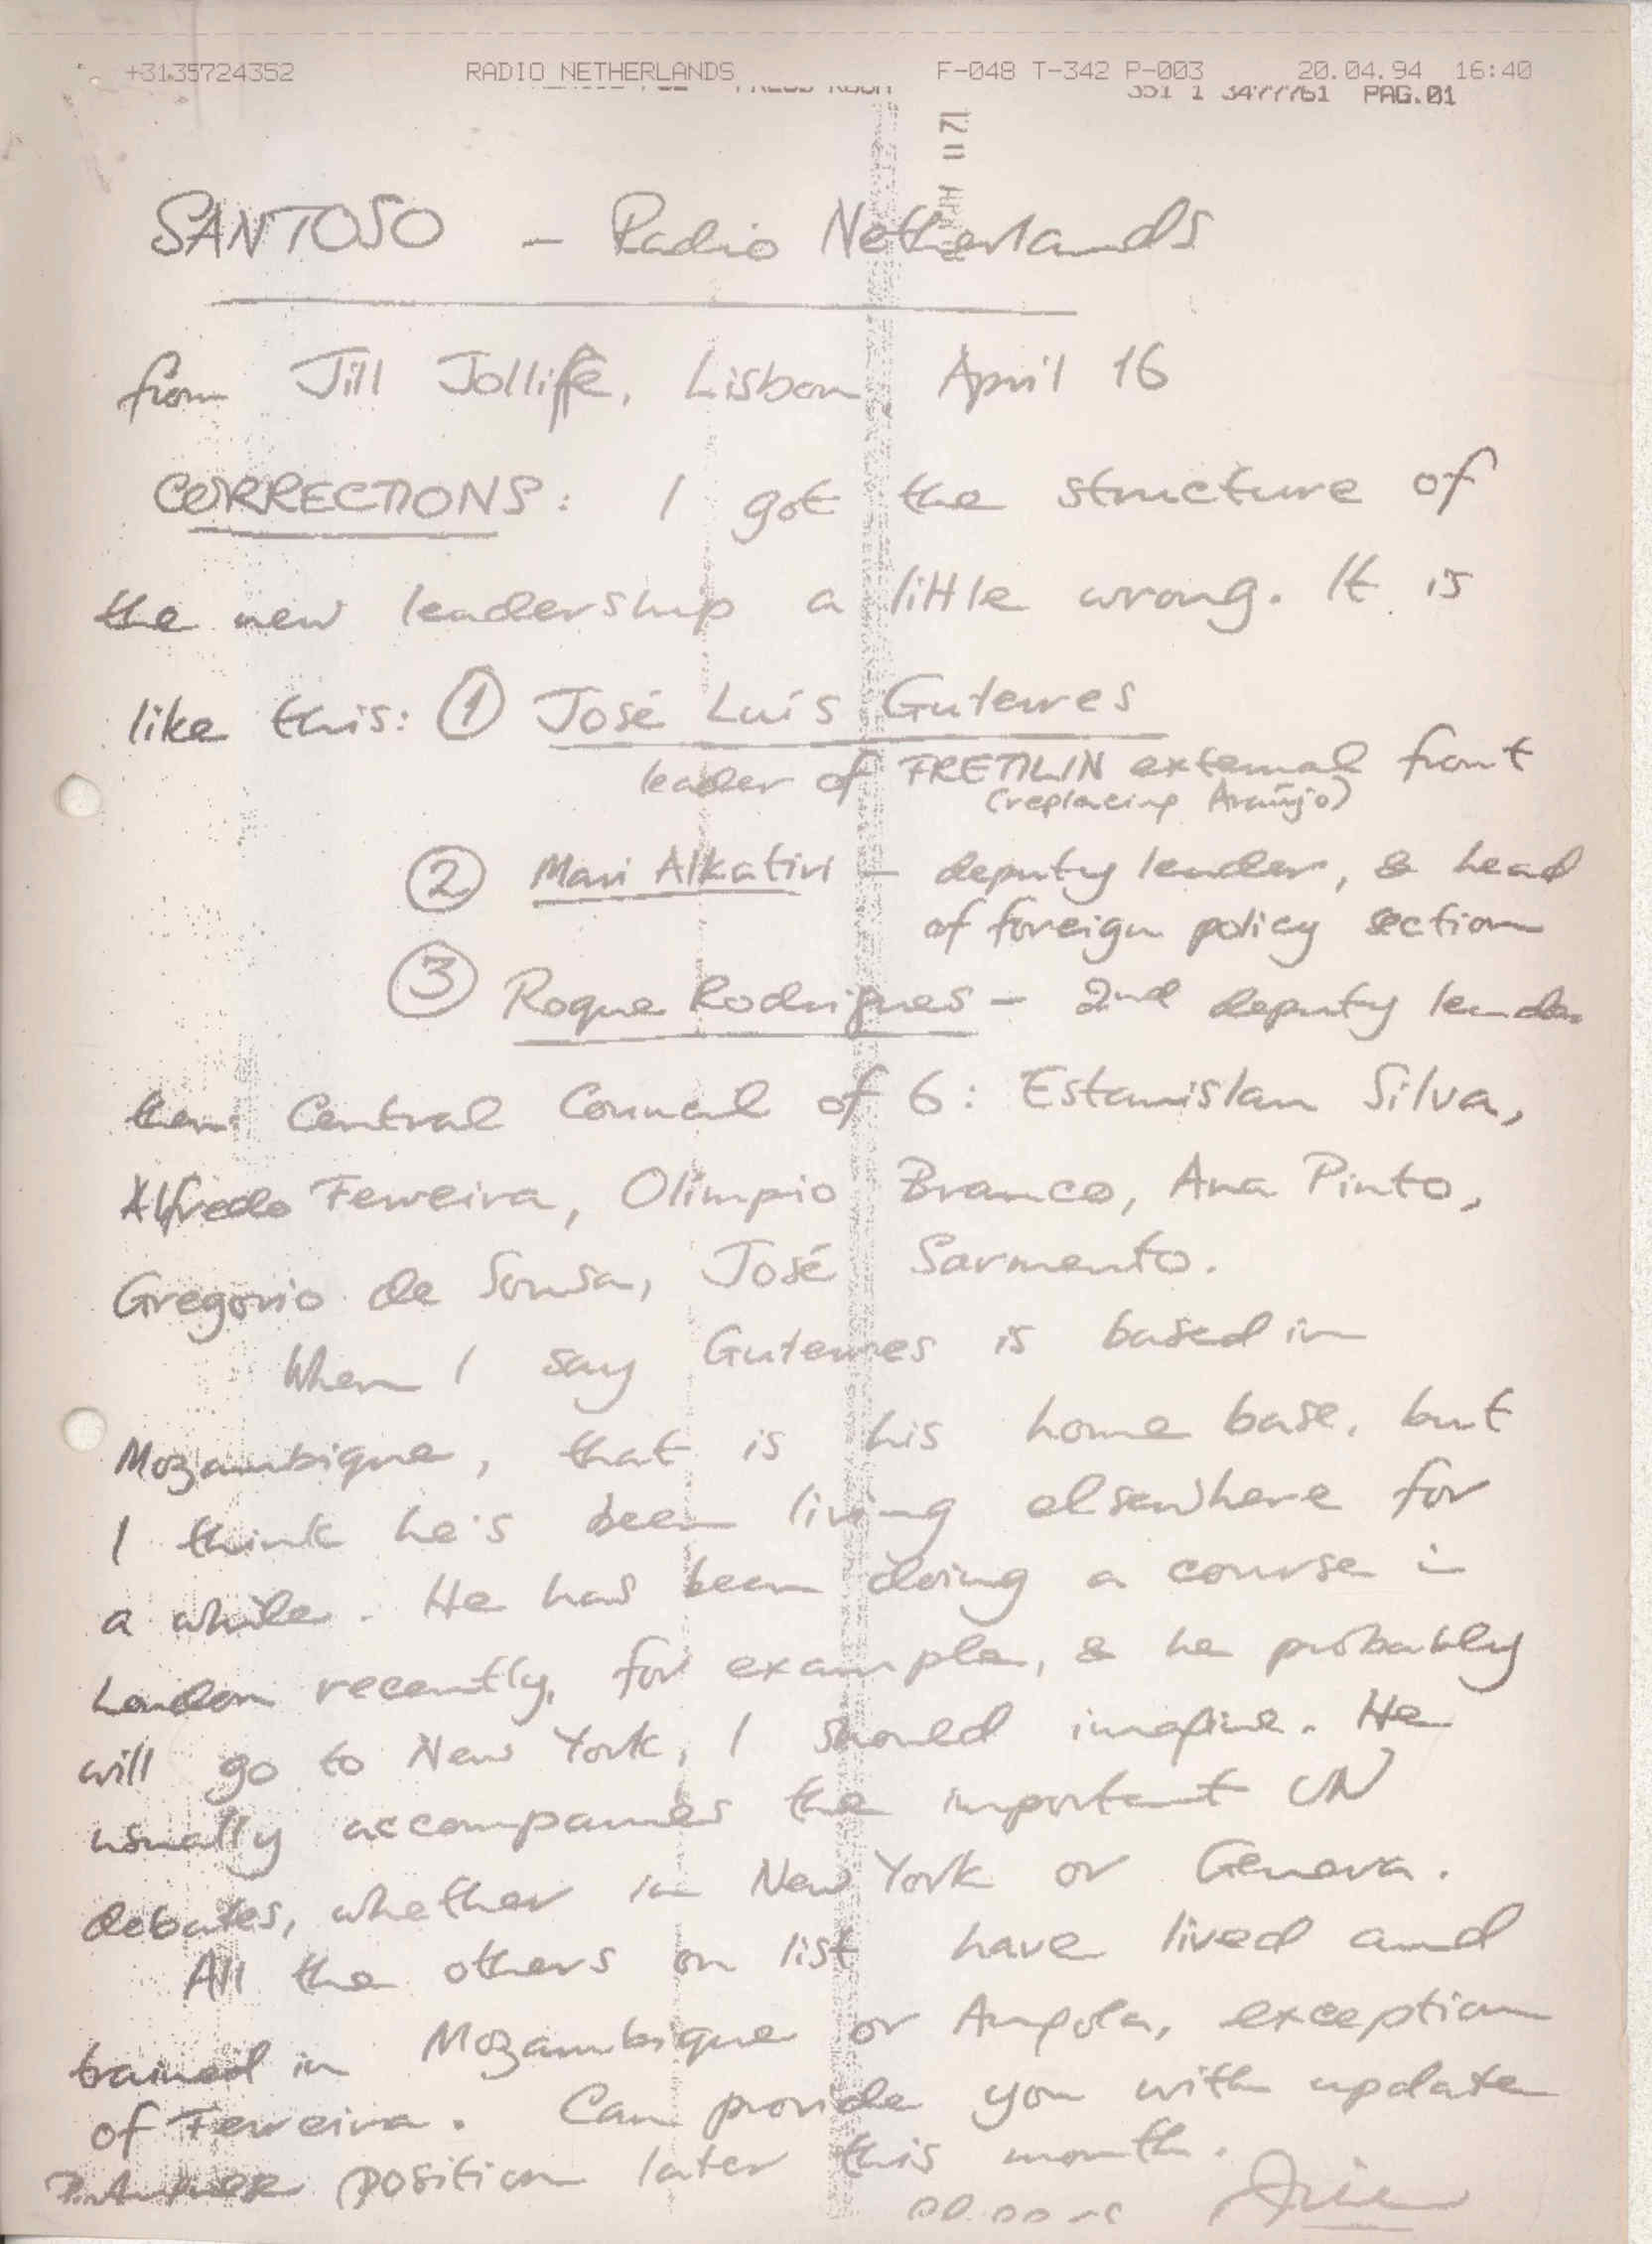 +3135724352 RADIO NETHERLANDS F-048 T-342 P-003 20.04.94 16:40
351 1 3477761 PAG.01
SANTOSO - Radio Netherlands
from Jill Jolliffe, Lisbon, April 16
CORRECTIONS: I got the structure of
the new leadership a little wrong. It is
like this: ① José Luís Guterres
leader of FRETILIN external front
(replacing Araújo)
② Mari Alkatiri - deputy leader, & head
of foreign policy section
③ Roque Rodrigues - 2nd deputy leader
then: Central Council of 6: Estanislau Silva,
Alfredo Ferreira, Olímpio Branco, Ana Pinto,
Gregorio de Sousa, José Sarmento.
When I say Guterres is based in
Mozambique, that is his home base, but
I think he's been living elsewhere for
a while. He has been doing a course in
London recently, for example, & he probably
will go to New York, I should imagine. He
usually accompanies the important UN
debates, whether in New York or Geneva.
All the others on list have lived and
trained in Mozambique or Angola, exception
of Ferreira. Can provide you with update
position later this month.
Jill